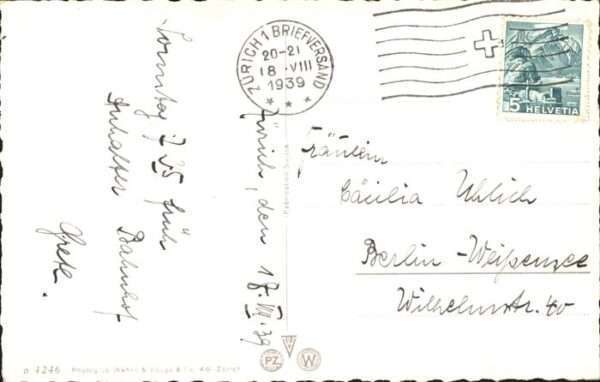 ZÜRICH 1 BRIEFVERSAND
20-21
18.VIII
1939
5
HELVETIA
Sonntag 7 35 früh
Anhalter Bahnhof
Grete.
Zürich, den 18.VIII.39
Fräulein
Cäcilia Uhlich
Berlin-Weißensee
Wilhelmstr. 40
4246
PZ
W